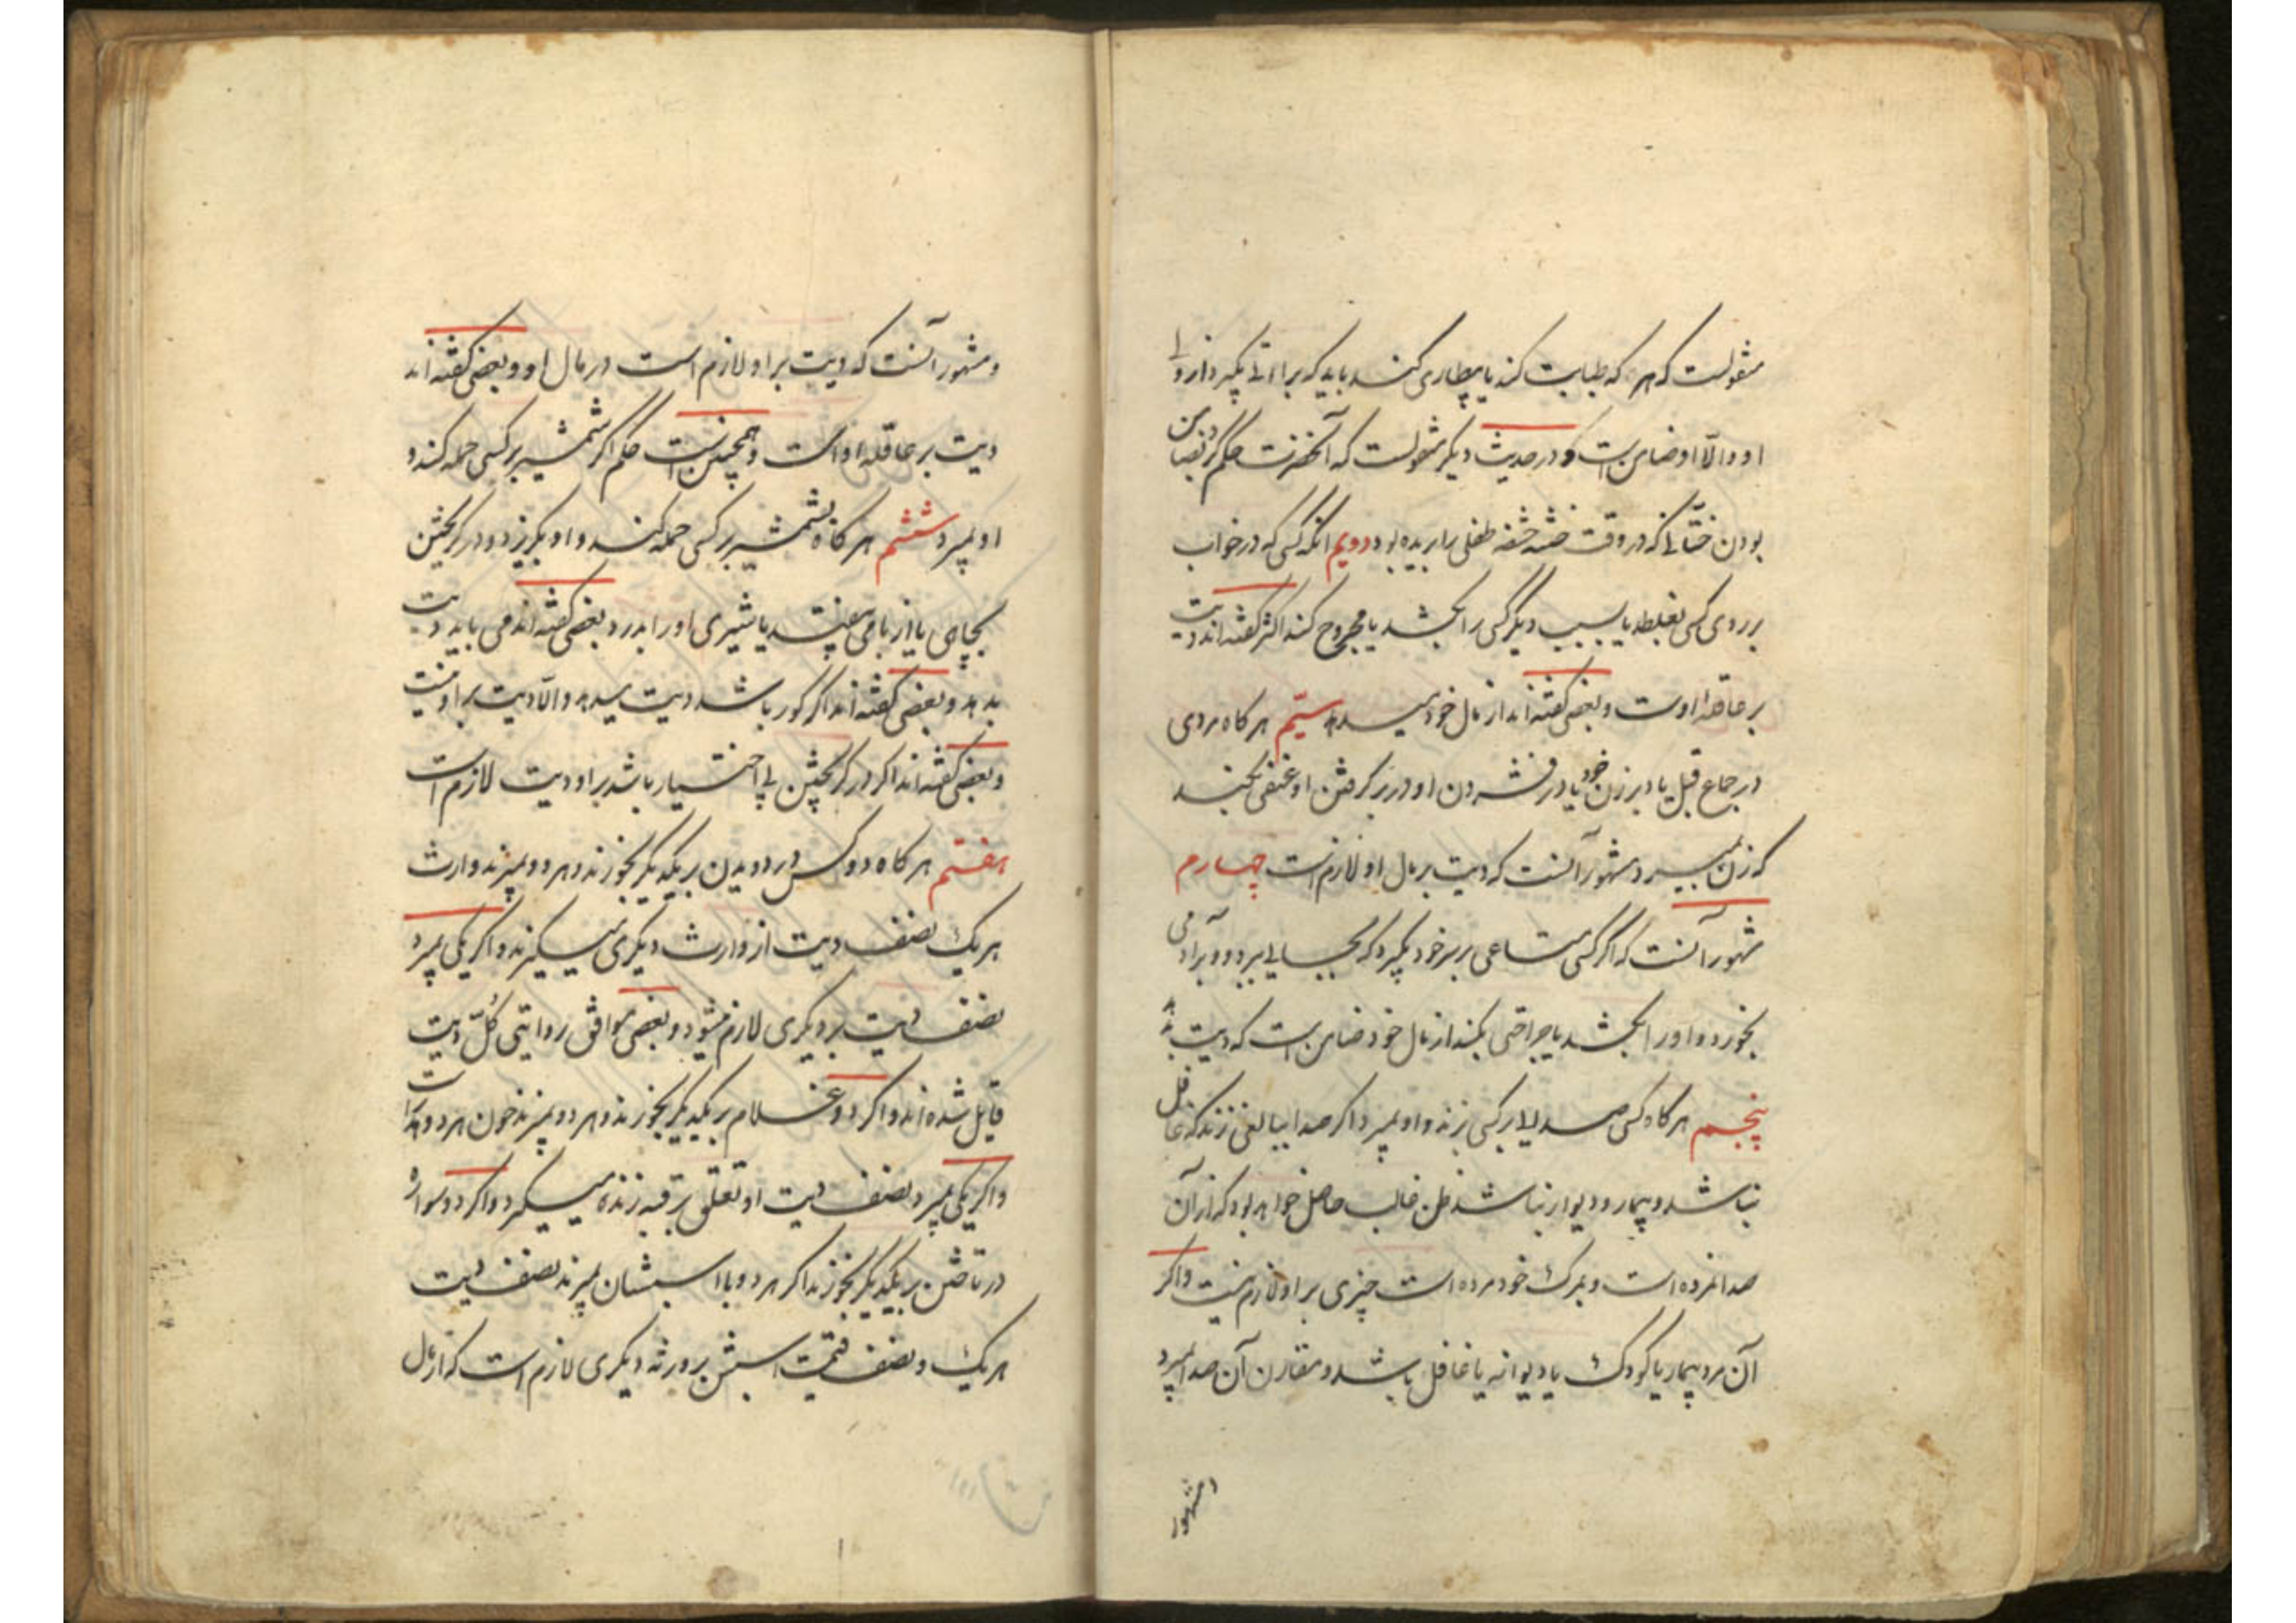 منقولست که هر که طبابت کند یا بیطاری کند باید که براتی بگیرد از ولی
او و الّا او ضامن است و در حدیث دیگر منقولست که آنحضرت حکم کرد بضامن
بودن ختّانی که در وقت ختنه حشفه طفلی را بریده بود دویم آنکه کسی که در خواب
بر روی کسی بغلطد یا بسبب دیگر کسی را بکشد یا مجروح کند اکثر گفته‌اند دیت
بر عاقلهٔ اوست و بعضی گفته‌اند از مال خود میدهد سیّم هر گاه مردی
در جماع قبل یا دبر زن خود یا در فشردن او و در بر گرفتن او عنفی بکند
که زن بمیرد مشهور آنست که دیت بر مال او لازم است چهارم
مشهور آنست که اگر کسی متاعی بر سر خود بگیرد که بجایی برد و بر آدمی
بخورد و او را بکشد یا جراحتی بکند از مال خود ضامن است که دیت بدهد
پنجم هر گاه کسی صدا بر کسی زند و او بمیرد اگر صدا ببالغی زند که غافل
نباشد و بیمار و دیوانه نباشد ظن غالب حاصل خواهد بود که از آن
صدا نمرده است و بمرگ خود مرده است چیزی بر او لازم نیست و اگر
آن مرد بیمار یا کودک یا دیوانه یا غافل باشد و مقارن آن صدا بمیرد
و مشهور
و مشهور آنست که دیت بر او لازم است در مال او و بعضی گفته‌اند
دیت بر عاقله او است و همچنین است حکم اگر شمشیر بر کسی حمله کند و
او بمیرد ششم هر گاه بشمشیر بر کسی حمله کند و او بگریزد و در گریختن
بچاهی یا از بامی بیفتد یا شیری او را بدرد بعضی گفته‌اند می باید دیت
بدهد و بعضی گفته‌اند اگر کور باشد دیت میدهد و الّا دیت بر او نیست
و بعضی گفته‌اند اگر در گریختن بی اختیار باشد بر او دیت لازم است
هفتم هر گاه دو کس در دویدن بر یکدیگر بخورند و هر دو بمیرند وارث
هر یک نصف دیت از وارث دیگری میگیرند و اگر یکی بمیرد
نصف دیت بر دیگری لازم میشود و بعضی موافق روایتی کُلّ دیت
قایل شده‌اند و اگر دو غلام بر یکدیگر بخورند و هر دو بمیرند خون هر دو هدر است
و اگر یکی بمیرد نصف دیت او تعلق برقبه زنده میگیرد و اگر دو سواره
در تاختن بر یکدیگر بخورند اگر هر دو با اسبشان بمیرند نصف دیت
هر یک و نصف قیمت اسبش بر ورثه دیگری لازم است که از مال